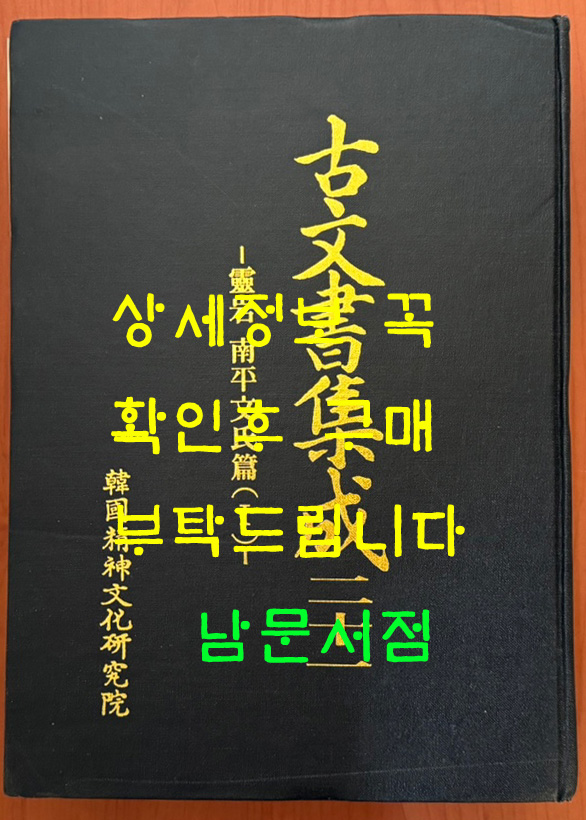 古文書集成 二十一
-靈岩 南平文氏篇(I)-
韓國精神文化研究院
상세정보 꼭
확인후 구매
부탁드립니다
남문서점